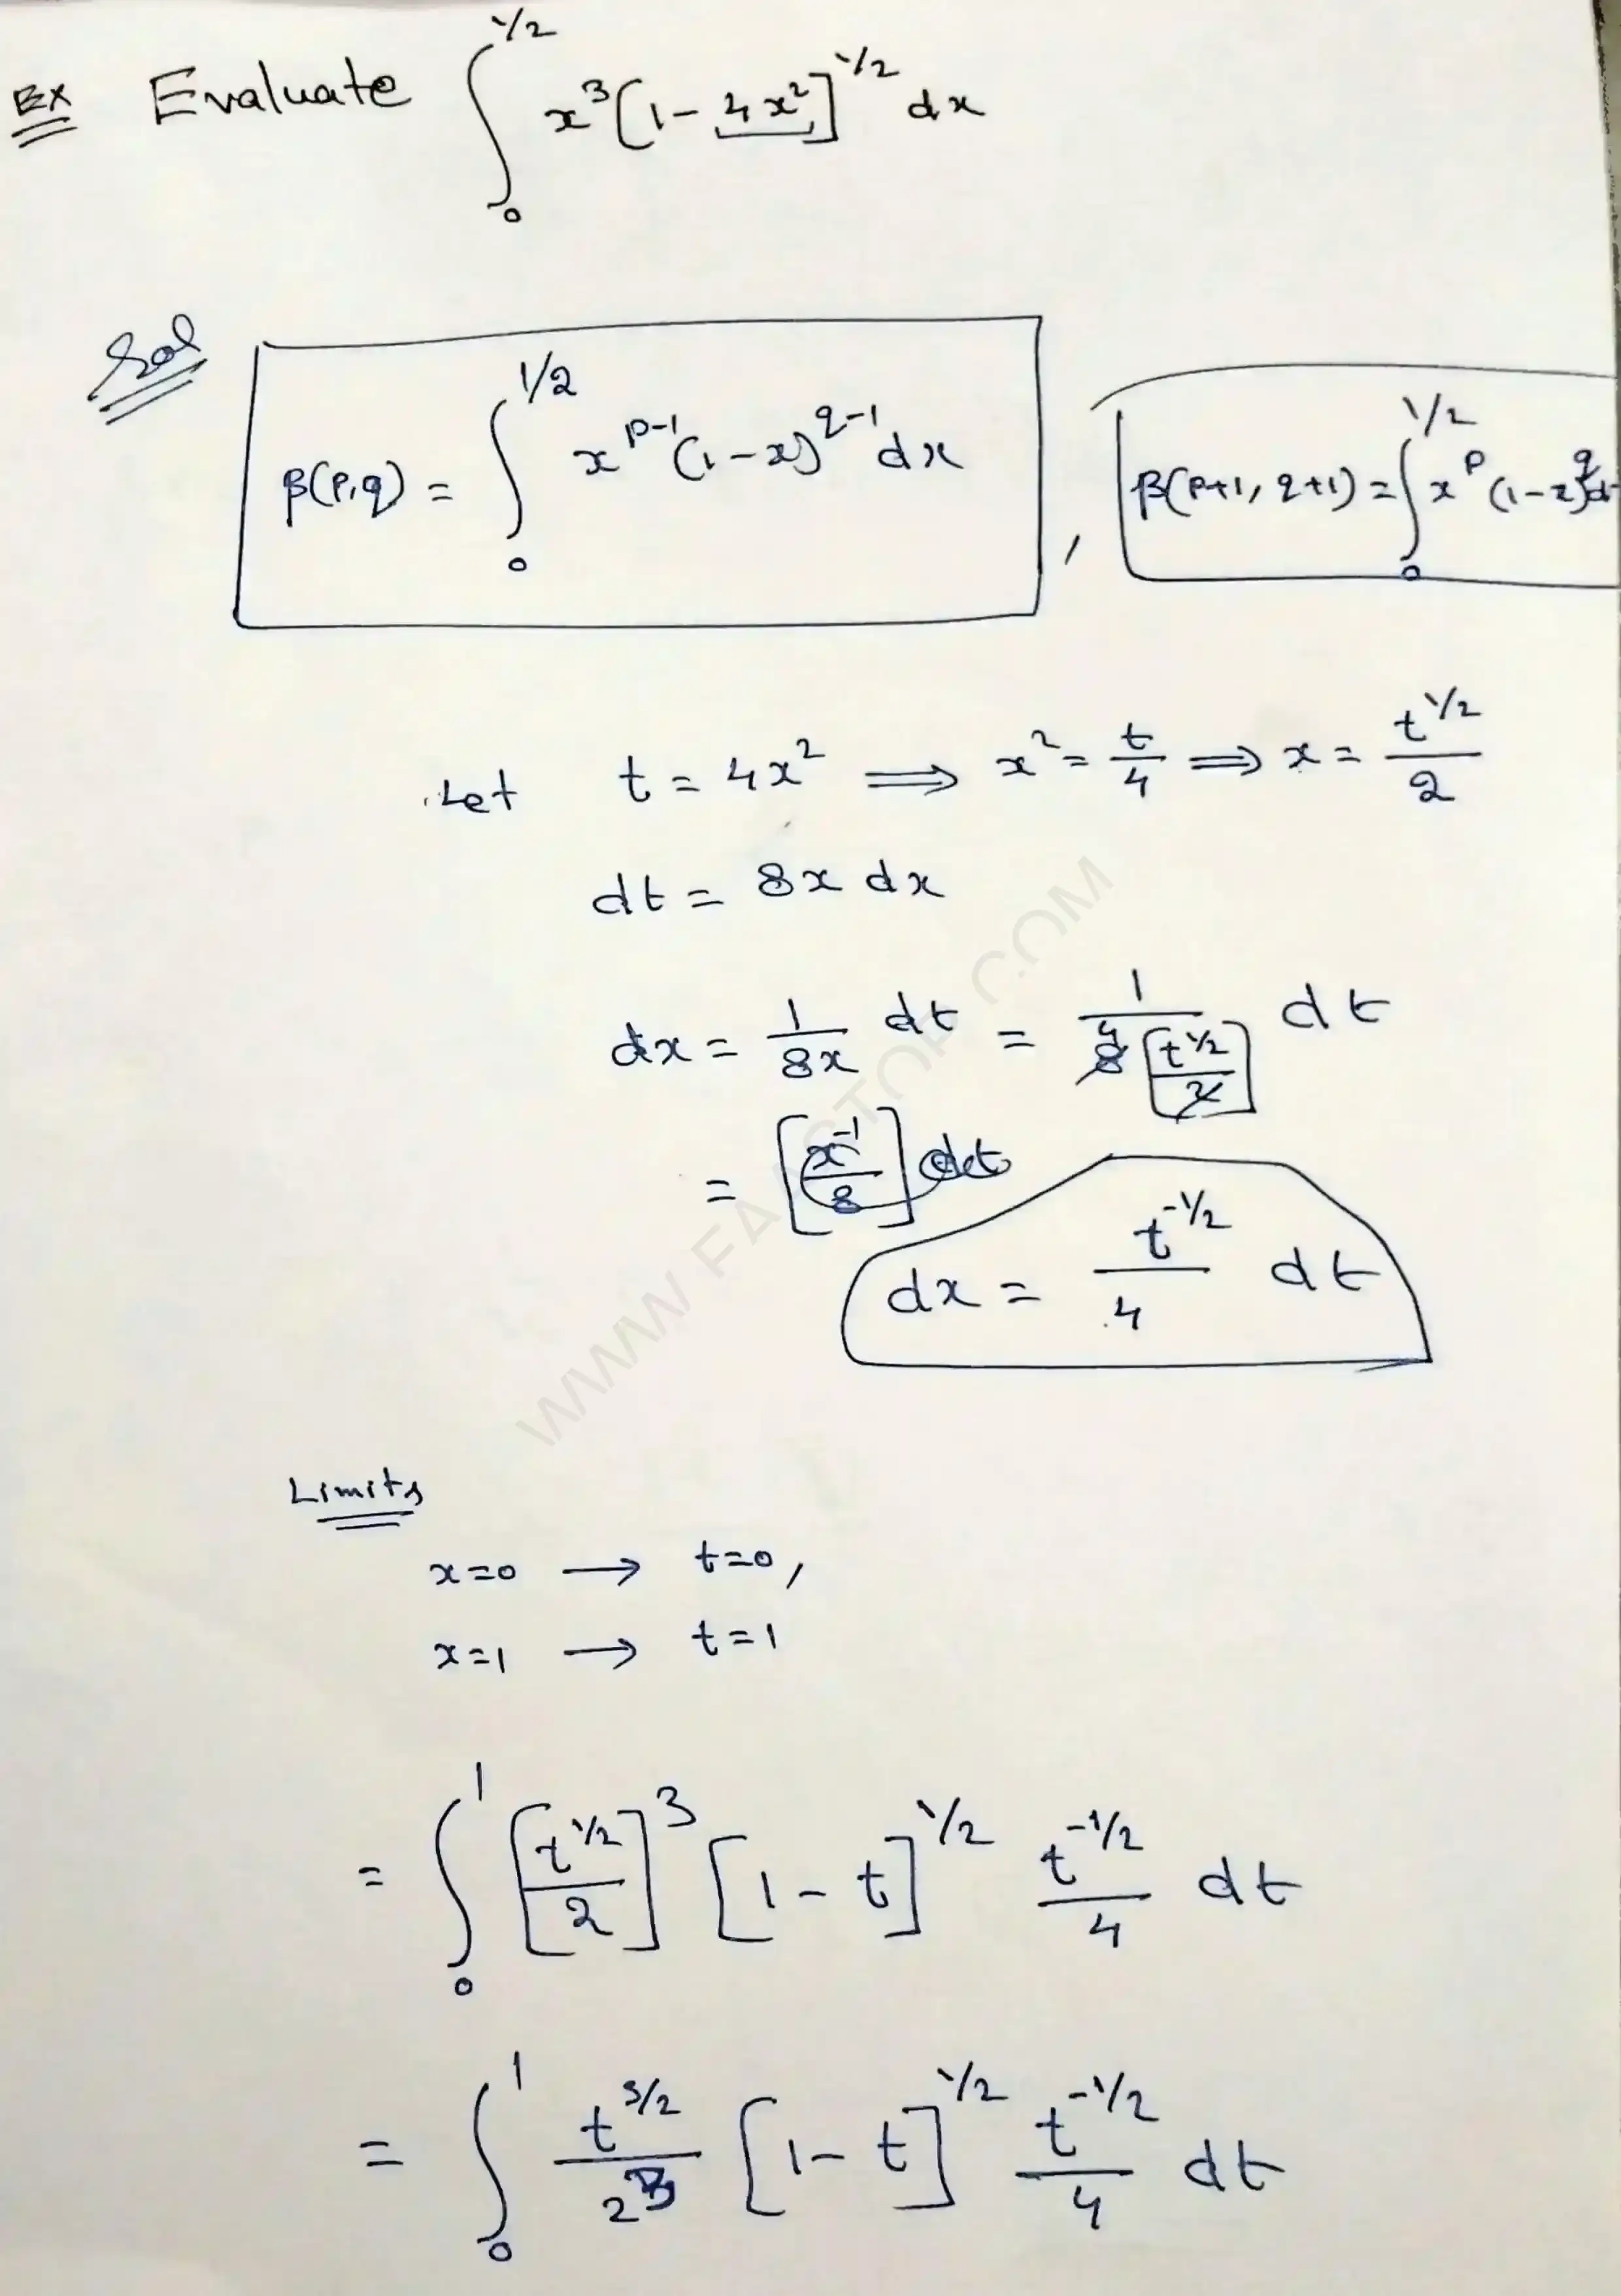 Ex Evaluate ∫₀^{1/2} x³[1 - 4x²]^{1/2} dx
Sol
β(p,q) = ∫₀^{1/2} x^{p-1}(1-x)^{q-1} dx , β(p+1, q+1) = ∫₀^{1/2} x^p (1-x)^q d
Let t = 4x² ⟹ x² = t/4 ⟹ x = t^{1/2}/2
dt = 8x dx
dx = 1/8x dt = 1/8[t^{1/2}/2] dt
= [x^{-1}/8] dt
dx = t^{-1/2}/4 dt
WWW.FA STOP.COM
Limits
x=0 → t=0,
x=1 → t=1
= ∫₀^1 [t^{1/2}/2]^3 [1 - t]^{1/2} t^{-1/2}/4 dt
= ∫₀^1 t^{3/2}/2^3 [1 - t]^{1/2} t^{-1/2}/4 dt